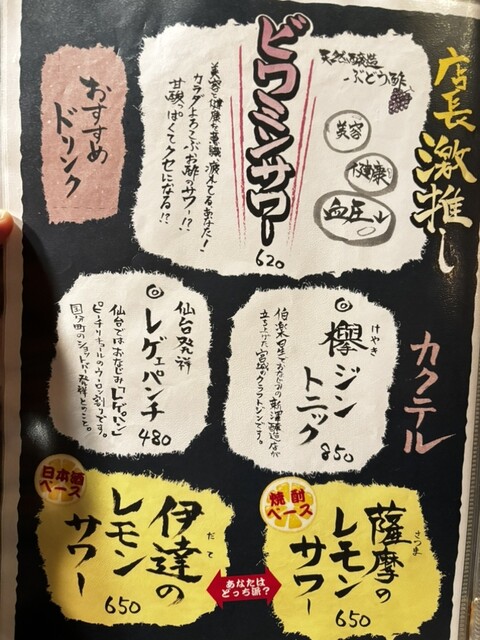 店長激推し
天然醸造
ぶどう酢
美容
健康
血圧↓
ビワミンサワー
620
美容と健康を意識、疲れてる、あなた!
カラダよろこぶお酢のサワー!?
甘酸っぱくてクセになる!?
おすすめ
ドリンク
カクテル
◎欅ジン
けやき
トニック
850
伯楽星でおなじみの新澤醸造店が
立ち上げた「宮城のクラフトジン」です。
仙台発祥
◎レゲエパンチ
480
仙台ではおなじみ「レゲパン」
ピーチリキュールのウーロン割りです。
国分町のショットバー発祥とのこと。
焼酎
ベース
薩摩の
さつま
レモン
サワー
650
あなたは
どっち派?
日本酒
ベース
伊達の
だて
レモン
サワー
650